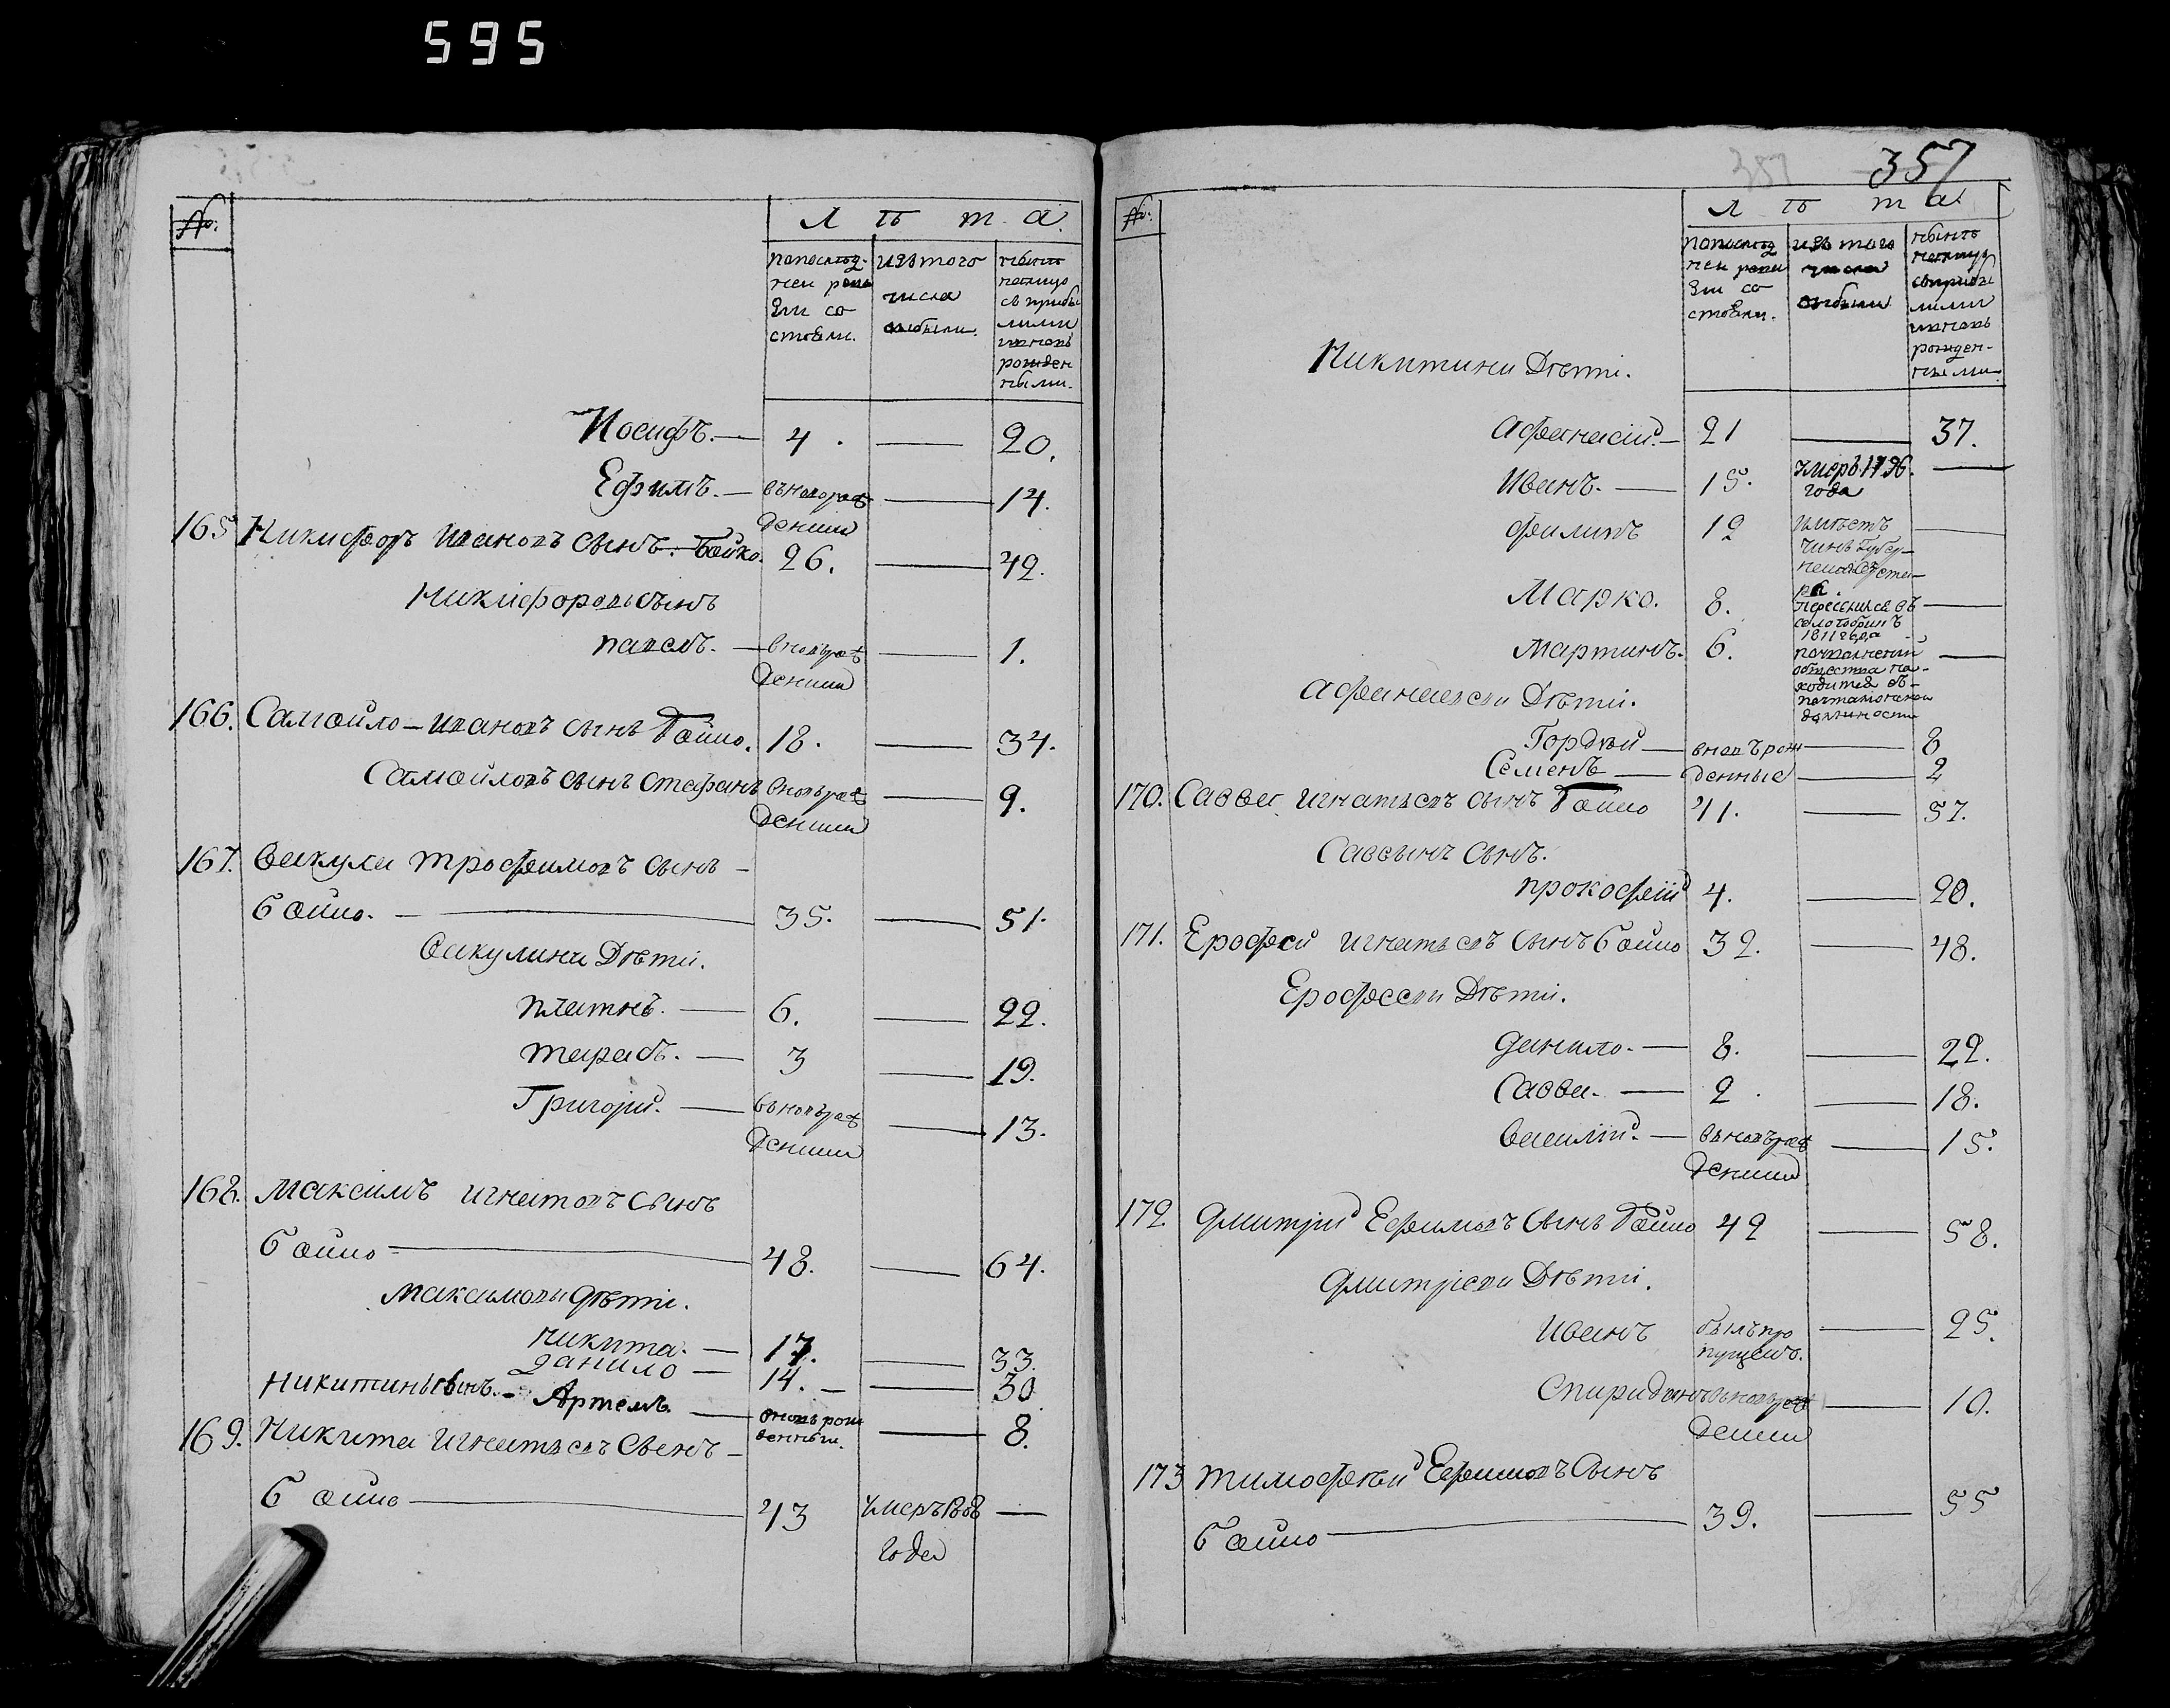 595
№
Лѣта
попослѣд-
ней реви
зіи со
стояли.
изъ того
числа
выбыли.
нынѣ
налицо
съ прибы
лыми
и вновь
рожден
ными.
Иосифъ. — 4. — 20.
Ефимъ. — вновь рож
денный — 14.
165 Никифоръ Ивановъ сынъ. Бойко. 26. — 42.
Никифоровъ сынъ
павелъ. — вновь рож
денный — 1.
166. Самойло — Ивановъ сынъ Бойко. 18. — 34.
Самойловъ сынъ Стефанъ вновь рож
денный — 9.
167. Вакула трофимовъ сынъ —
Бойко. — 35. — 51.
Вакулини Дѣти.
платнъ. — 6. — 22.
тарасъ. — 3 — 19.
Григорій. — вновь рож
денный — 13.
168. Максимъ игнатовъ сынъ
Бойко — 48. — 64.
Максимови дѣти.
никита. — 17. — 33.
данило — 14. — 30
никитинъ сынъ. — Артемъ. — вновь рож
денный. — 8.
169. Никита игнатьевъ сынъ —
Бойко — 43 умеръ 1808 —
года
357
357
№
Лѣта
попослѣд
ней реви
зіи со
стояли.
изъ того
числа
выбыли
нынѣ
налицо
съ прибы
лыми
и вновь
рожден-
ными
Никитини Дѣти.
Афанасій. — 21 — 37.
Иванъ. — 15. умеръ 1796. —
года
филипъ 12 имѣетъ —
чинъ Губер-
Марко. 8. пересѣлился въ —
село
1811 года
Мартинъ. 6. —
общества на-
ходится въ
должности
Афанасьеви Дѣти.
Гордѣй — вновь рож — 8
Семенъ — денные — 2
170. Савва игнатьевъ сынъ Бойко 41. — 57.
Саввинъ сынъ.
прокофій 4. — 20.
171. Ерофей игнатьевъ сынъ Бойко 32. — 48.
Ерофееви Дѣти.
данило. — 8. — 22.
Савва. — 2. — 18.
василій. — вновь рож
денный — 15.
172. дмитрій Ефимовъ сынъ Бойко 42 — 58.
дмитріеви Дѣти.
Иванъ былъ про
пущенъ. — 25.
Спиридонъ вновь рож
денный — 10.
173 тимофѣй Ефимовъ Сынъ
Бойко — 39. — 55